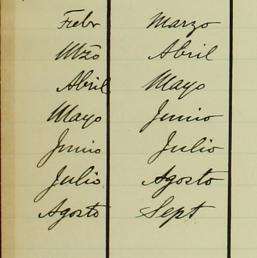 Febr Marzo
Mzo Abril
Abril Mayo
Mayo Junio
Junio Julio
Julio Agosto
Agosto Sept